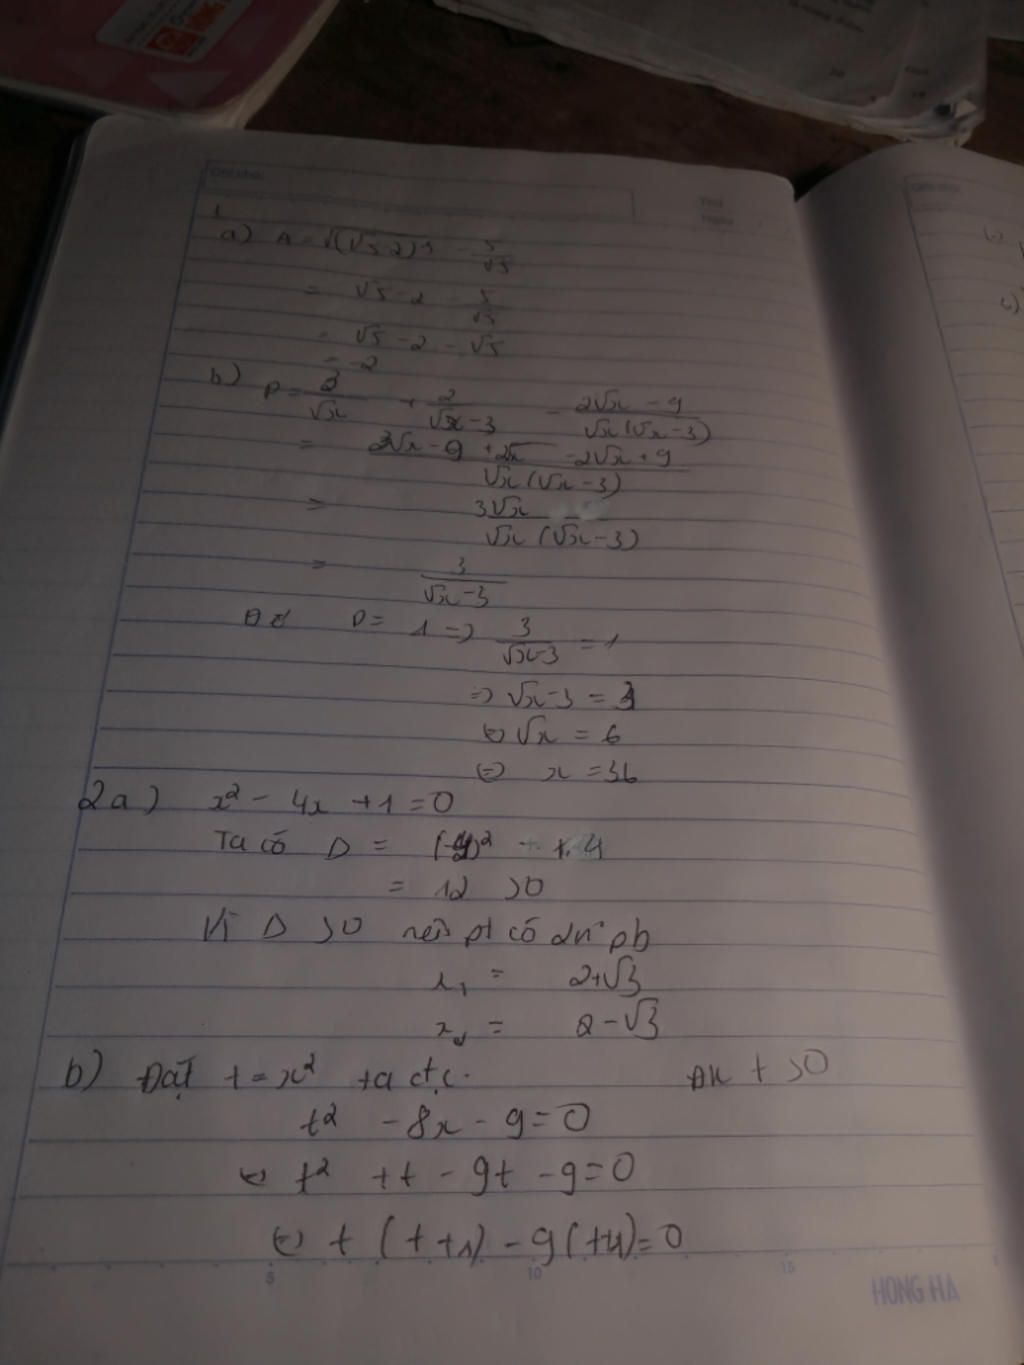 Ghi nhớ:
Thứ
Ngày
1
a) A = √(√5-2)² - 5/√5
= √5 - 2 - 5/√5
= √5 - 2 - √5
= -2
b) P = 3/√x + 2/(√x - 3) - (2√x - 9)/(√x(√x - 3))
= (3√x - 9 + 2√x - 2√x + 9)/(√x(√x - 3))
= 3√x/(√x(√x - 3))
= 3/(√x - 3)
Để P = 1 => 3/(√x-3) = 1
=> √x - 3 = 3
<=> √x = 6
<=> x = 36
2a) x² - 4x + 1 = 0
Ta có Δ = (-4)² - 1.4
= 12 > 0
Vì Δ > 0 nên pt có 2n° pb
x₁ = 2+√3
x₂ = 2-√3
b) Đặt t = x² ta đc. ĐK t > 0
t² - 8x - 9 = 0
<=> t² + t - 9t - 9 = 0
<=> t (t+1) - 9(t+1) = 0
5 10 15
HONG HA